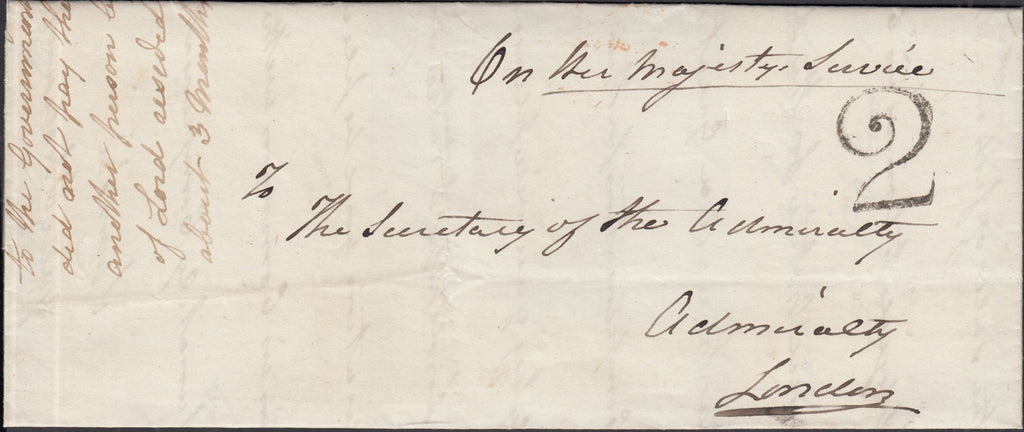 On Her Majestys Service
2
To
The Secretary of the Admiralty
Admiralty
London
to the Government
did not pay the
another person
of Lord
about 3 Months